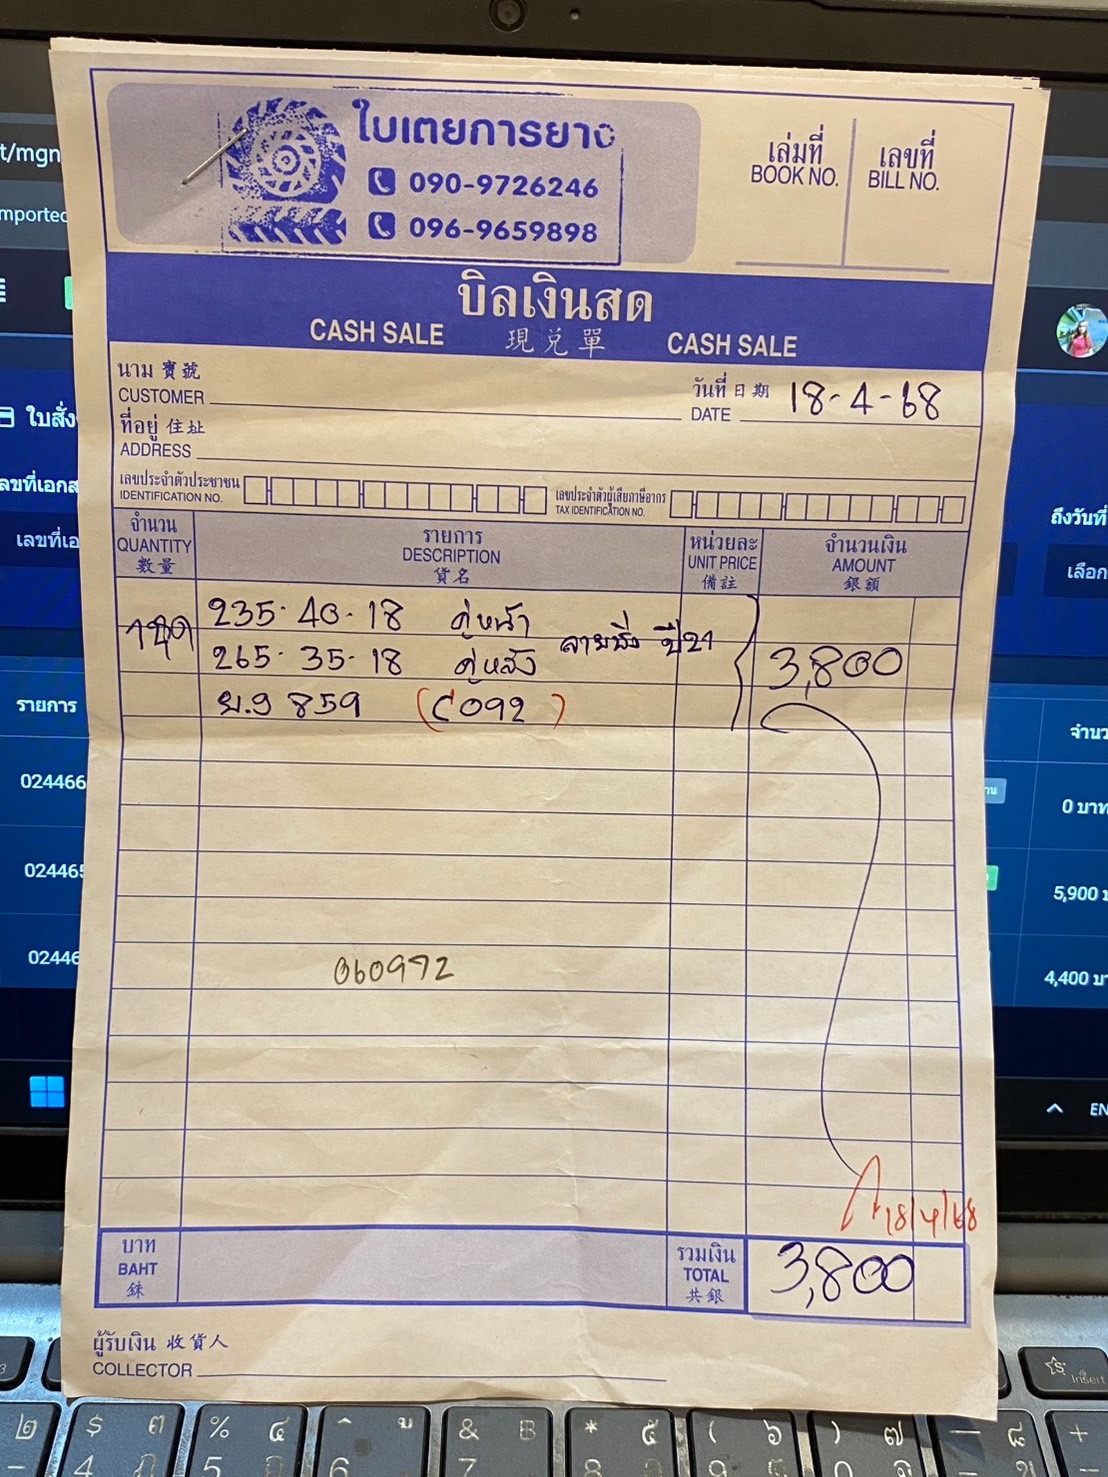 ใบเตยการยาง
090-9726246
096-9659898
เล่มที่
BOOK NO.
เลขที่
BILL NO.
บิลเงินสด
CASH SALE 現兌單 CASH SALE
นาม 寶號
CUSTOMER
วันที่ 日期
DATE
18-4-68
ที่อยู่ 住址
ADDRESS
เลขประจำตัวประชาชน
IDENTIFICATION NO.
เลขประจำตัวผู้เสียภาษีอากร
TAX IDENTIFICATION NO.
จำนวน
QUANTITY
數量
รายการ
DESCRIPTION
貨名
หน่วยละ
UNIT PRICE
備註
จำนวนเงิน
AMOUNT
銀額
1 ชุด
235-40-18 คู่หน้า
265-35-18 คู่หลัง
ปี 21
3,800
ย.9 859 (C092)
060972
18/4/68
บาท
BAHT
銖
รวมเงิน
TOTAL
共銀
3,800
ผู้รับเงิน 收貨人
COLLECTOR
t/mgn
mported
ใบสั่ง
ลขที่เอกส
เลขที่เอ
รายการ
024466
02446
02446
ถึงวันที่
เลือก
จำนว
0 บาท
5,900
4,400 บา
EN
Insert
$ ๓ 4
% ๔ 5
6
& 7
* ๕ 8
( ๖ 9
) ๗ 0